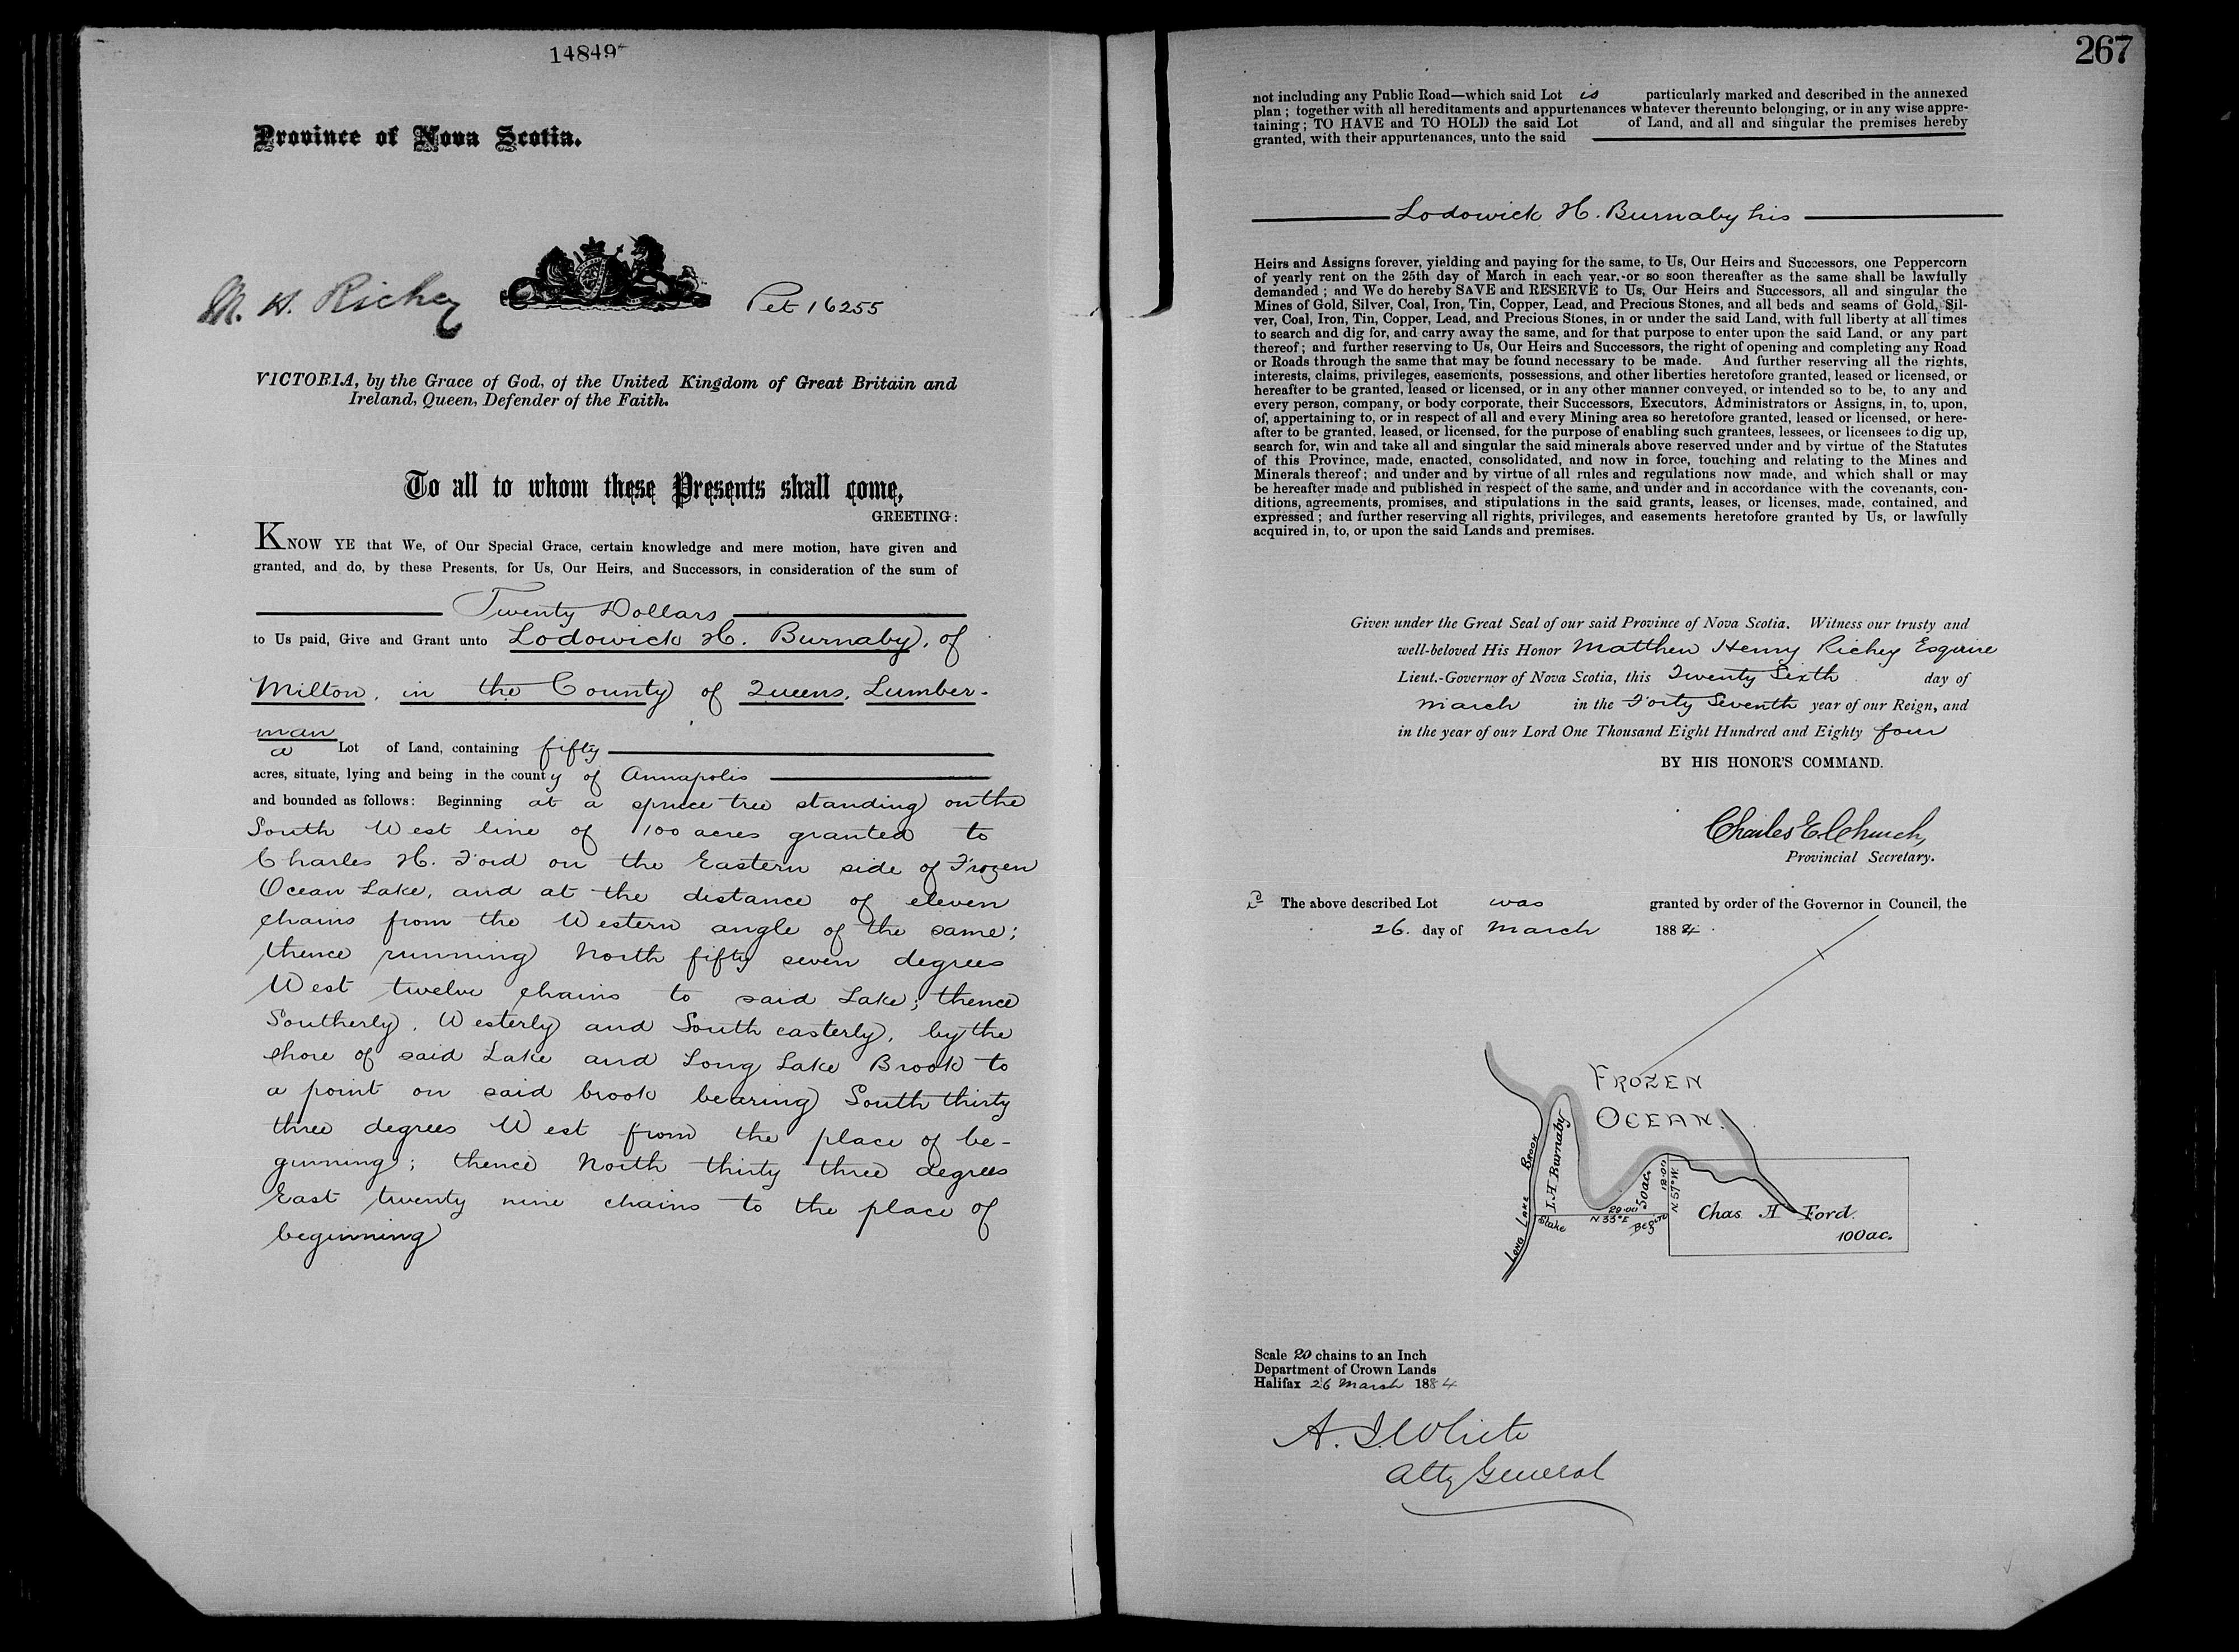 14849
Province of Nova Scotia.
M. H. Richey
Pet 16255
VICTORIA, by the Grace of God, of the United Kingdom of Great Britain and
Ireland, Queen, Defender of the Faith.
To all to whom these Presents shall come,
GREETING:
KNOW YE that We, of Our Special Grace, certain knowledge and mere motion, have given and
granted, and do, by these Presents, for Us, Our Heirs, and Successors, in consideration of the sum of
Twenty Dollars
to Us paid, Give and Grant unto Lodowick H. Burnaby, of
Milton, in the County of Queens, Lumber-
man
a Lot of Land, containing fifty
acres, situate, lying and being in the county of Annapolis
and bounded as follows: Beginning at a spruce tree standing on the
South West line of 100 acres granted to
Charles H. Ford on the Eastern side of Frozen
Ocean Lake, and at the distance of eleven
chains from the Western angle of the same;
thence running North fifty seven degrees
West twelve chains to said Lake; thence
Southerly, Westerly and South easterly, by the
shore of said Lake and Long Lake Brook to
a point on said brook bearing South thirty
three degrees West from the place of be-
ginning; thence North thirty three degrees
East twenty nine chains to the place of
beginning
267
not including any Public Road—which said Lot is particularly marked and described in the annexed
plan; together with all hereditaments and appurtenances whatever thereunto belonging, or in any wise appre-
taining; TO HAVE and TO HOLD the said Lot of Land, and all and singular the premises hereby
granted, with their appurtenances, unto the said
Lodowick H. Burnaby his
Heirs and Assigns forever, yielding and paying for the same, to Us, Our Heirs and Successors, one Peppercorn
of yearly rent on the 25th day of March in each year, or so soon thereafter as the same shall be lawfully
demanded; and We do hereby SAVE and RESERVE to Us, Our Heirs and Successors, all and singular the
Mines of Gold, Silver, Coal, Iron, Tin, Copper, Lead, and Precious Stones, and all beds and seams of Gold, Sil-
ver, Coal, Iron, Tin, Copper, Lead, and Precious Stones, in or under the said Land, with full liberty at all times
to search and dig for, and carry away the same, and for that purpose to enter upon the said Land, or any part
thereof; and further reserving to Us, Our Heirs and Successors, the right of opening and completing any Road
or Roads through the same that may be found necessary to be made. And further reserving all the rights,
interests, claims, privileges, easements, possessions, and other liberties heretofore granted, leased or licensed, or
hereafter to be granted, leased or licensed, or in any other manner conveyed, or intended so to be, to any and
every person, company, or body corporate, their Successors, Executors, Administrators or Assigns, in, to, upon,
of, appertaining to, or in respect of all and every Mining area so heretofore granted, leased or licensed, or here-
after to be granted, leased, or licensed, for the purpose of enabling such grantees, lessees, or licensees to dig up,
search for, win and take all and singular the said minerals above reserved under and by virtue of the Statutes
of this Province, made, enacted, consolidated, and now in force, touching and relating to the Mines and
Minerals thereof; and under and by virtue of all rules and regulations now made, and which shall or may
be hereafter made and published in respect of the same, and under and in accordance with the covenants, con-
ditions, agreements, promises, and stipulations in the said grants, leases, or licenses, made, contained, and
expressed; and further reserving all rights, privileges, and easements heretofore granted by Us, or lawfully
acquired in, to, or upon the said Lands and premises.
Given under the Great Seal of our said Province of Nova Scotia. Witness our trusty and
well-beloved His Honor Matthew Henry Richey Esquire
Lieut.-Governor of Nova Scotia, this Twenty Sixth day of
March in the Forty Seventh year of our Reign, and
in the year of our Lord One Thousand Eight Hundred and Eighty four
BY HIS HONOR'S COMMAND.
Charles E Church,
Provincial Secretary.
The above described Lot was granted by order of the Governor in Council, the
26. day of March 1884.
FROZEN
OCEAN.
LONG LAKE BROOK
L H Burnaby
50 ac.
12.00
N 57° W.
29.00
N 33° E
Stake
Chas H Ford.
100 ac.
Scale 20 chains to an Inch
Department of Crown Lands
Halifax 26 March 1884
A. J. White
Atty General